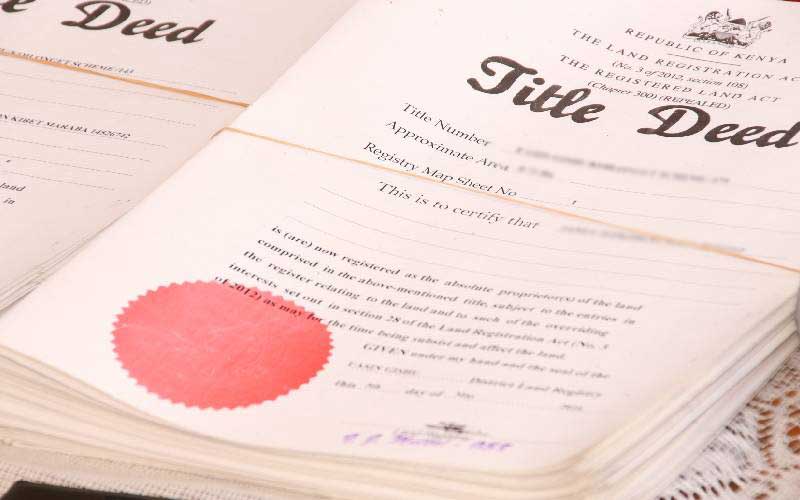 Deed
REPUBLIC OF KENYA
THE LAND REGISTRATION AC
(No. 3 of 2012, section 108)
THE REGISTERED LAND ACT
(Chapter 300) (REPEALED)
Title Deed
Title Number
Approximate Area
Registry Map Sheet No
This is to certify that
is (are) now registered as the absolute proprietor(s) of the land
comprised in the above-mentioned title, subject to the entries in
the register relating to the land and to such of the overriding
interests set out in section 28 of the Land Registration Act (No. 3
of 2012) as may for the time being subsist and affect the land.
GIVEN under my hand and the seal of the
District Land Registry
this day of
land
in